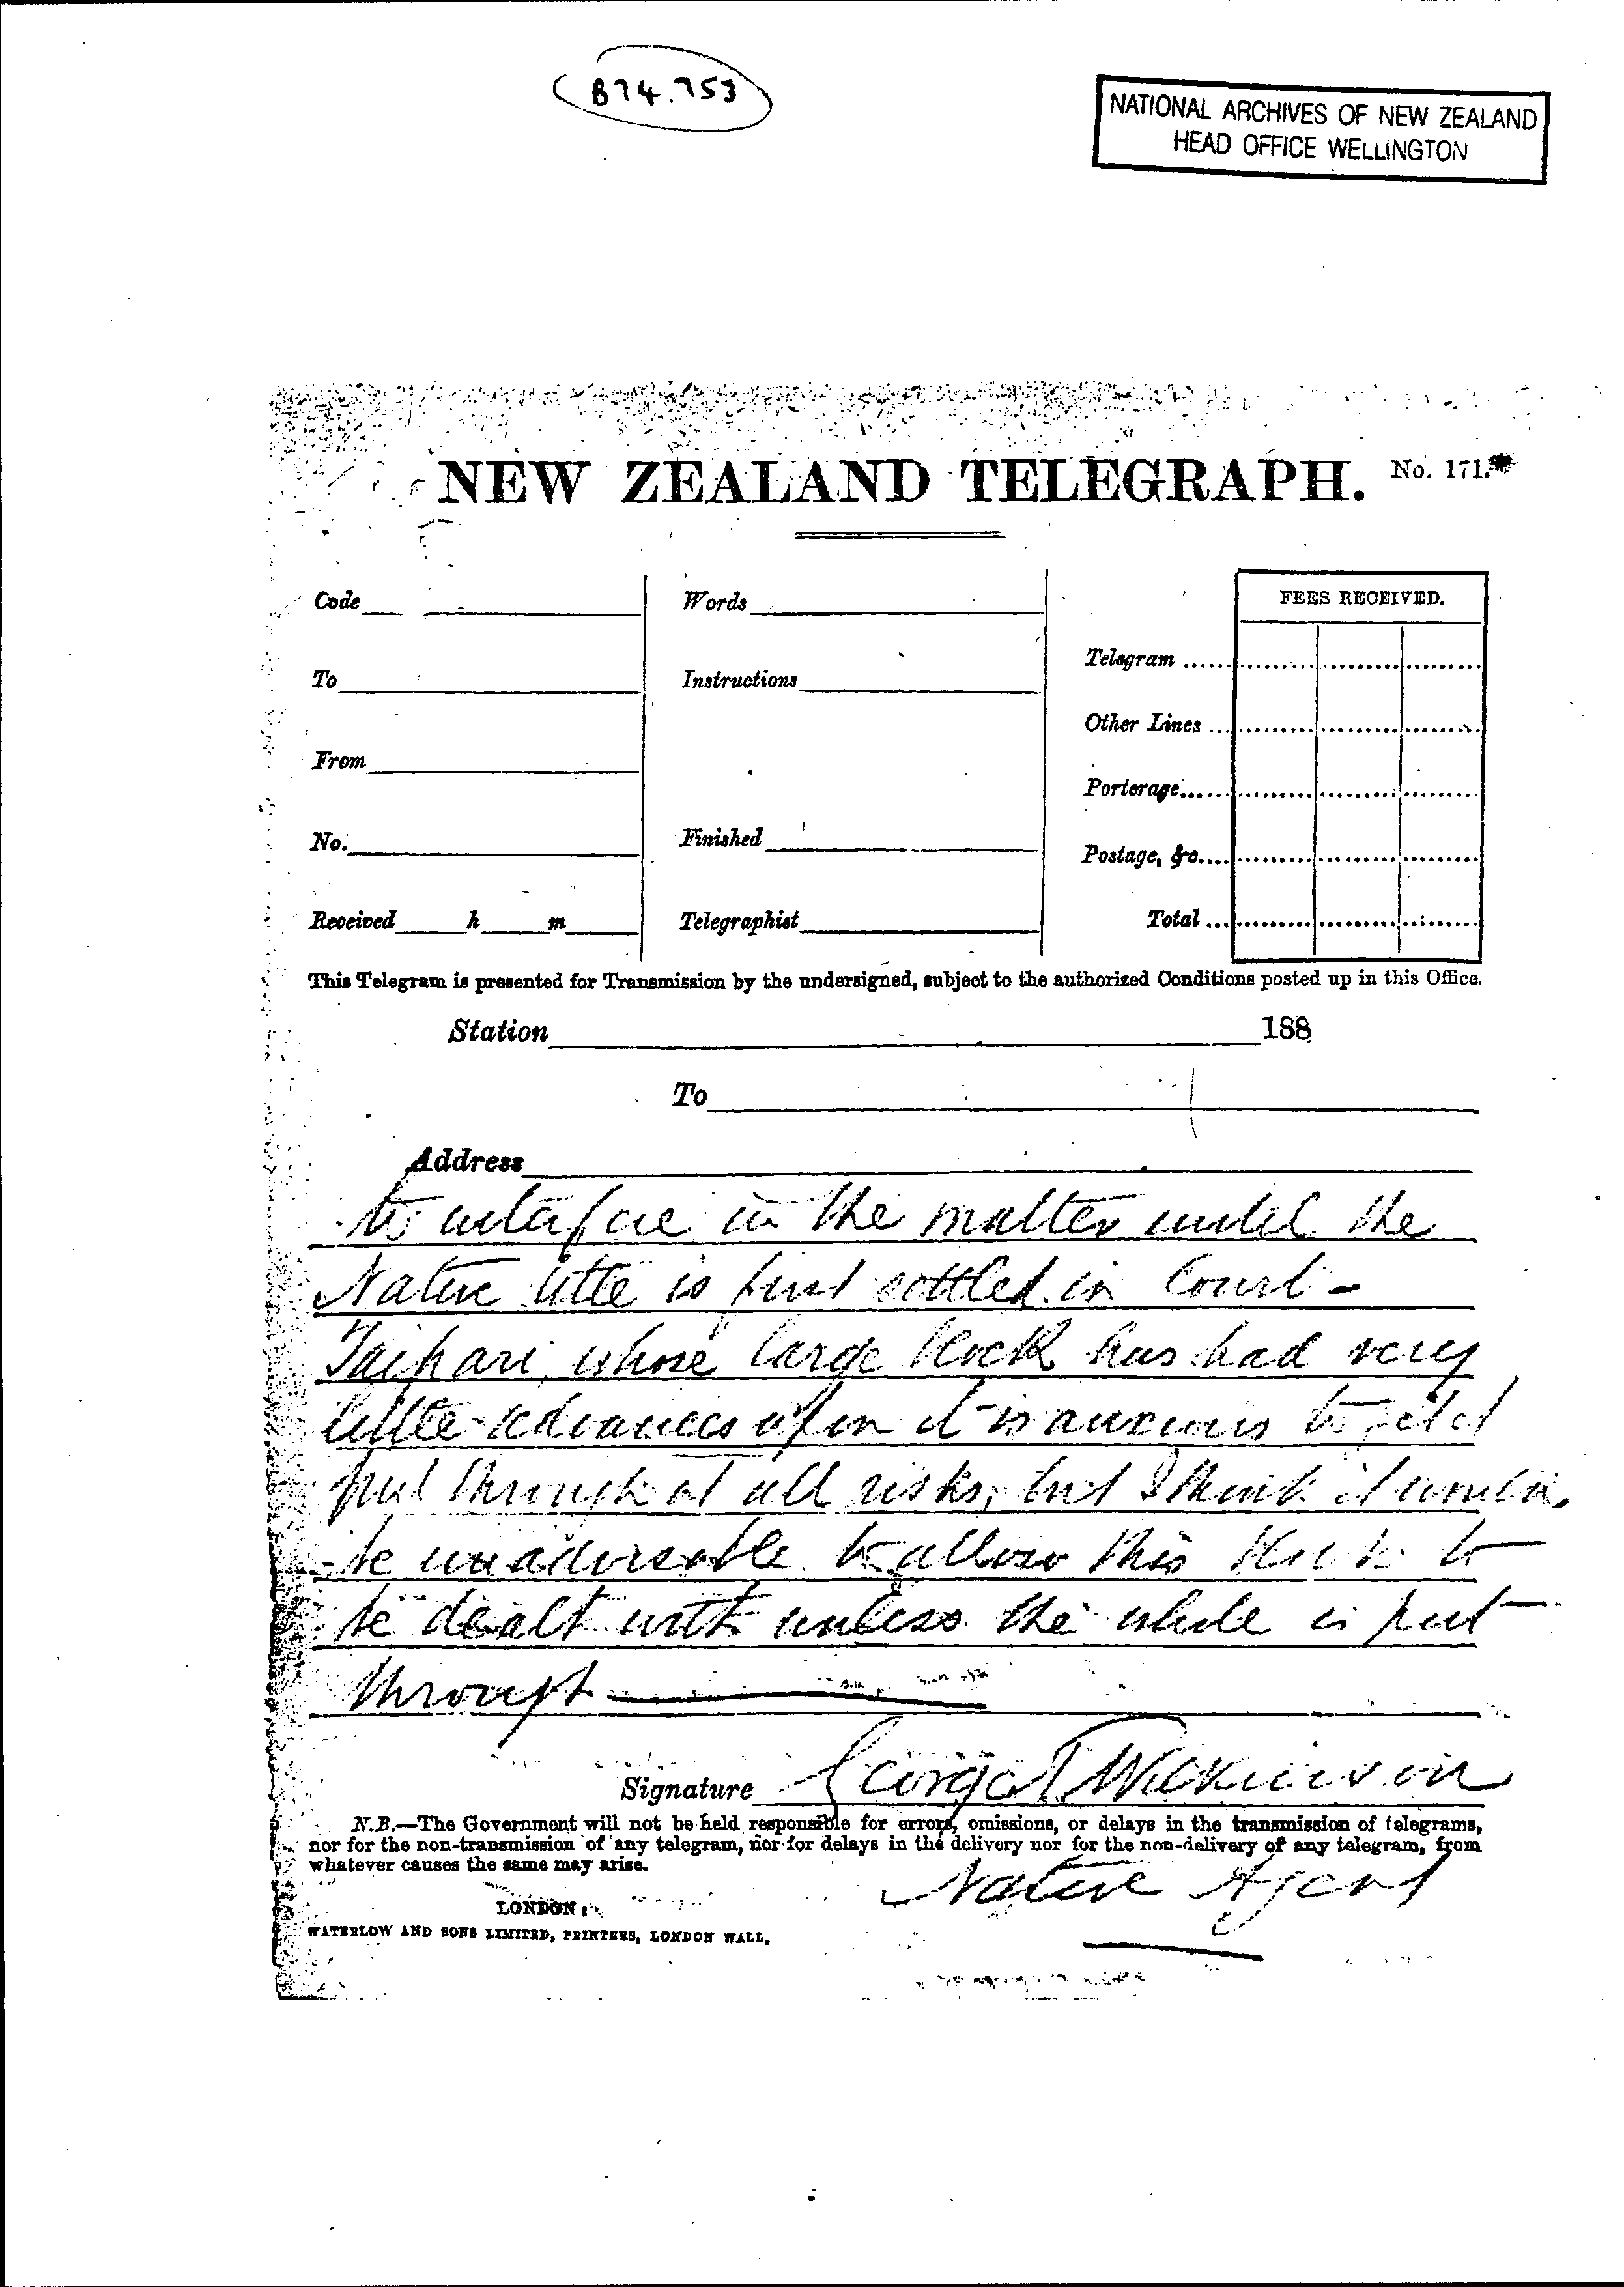 B74.753
NATIONAL ARCHIVES OF NEW ZEALAND
HEAD OFFICE WELLINGTON
NEW ZEALAND TELEGRAPH. No. 171.
Code
Words
FEES RECEIVED.
Telegram ......
To
Instructions
Other Lines ...
From
Porterage......
No.
Finished
Postage, &c....
Received h m
Telegraphist
Total ...
This Telegram is presented for Transmission by the undersigned, subject to the authorized Conditions posted up in this Office.
Station 188
To
Address
to interfere in the matter until the
Native title is first settled in Court –
Taipari, whose large block has had very
little advances upon it is anxious to get it
put through at all risks, but I think it would
be unadvisable to allow this block to
be dealt with unless the whole is put
through
Signature George T Wilkinson
N.B.—The Government will not be held responsible for errors, omissions, or delays in the transmission of telegrams,
nor for the non-transmission of any telegram, nor for delays in the delivery nor for the non-delivery of any telegram, from
whatever causes the same may arise.
Native Agent
LONDON:
WATERLOW AND SONS LIMITED, PRINTERS, LONDON WALL.